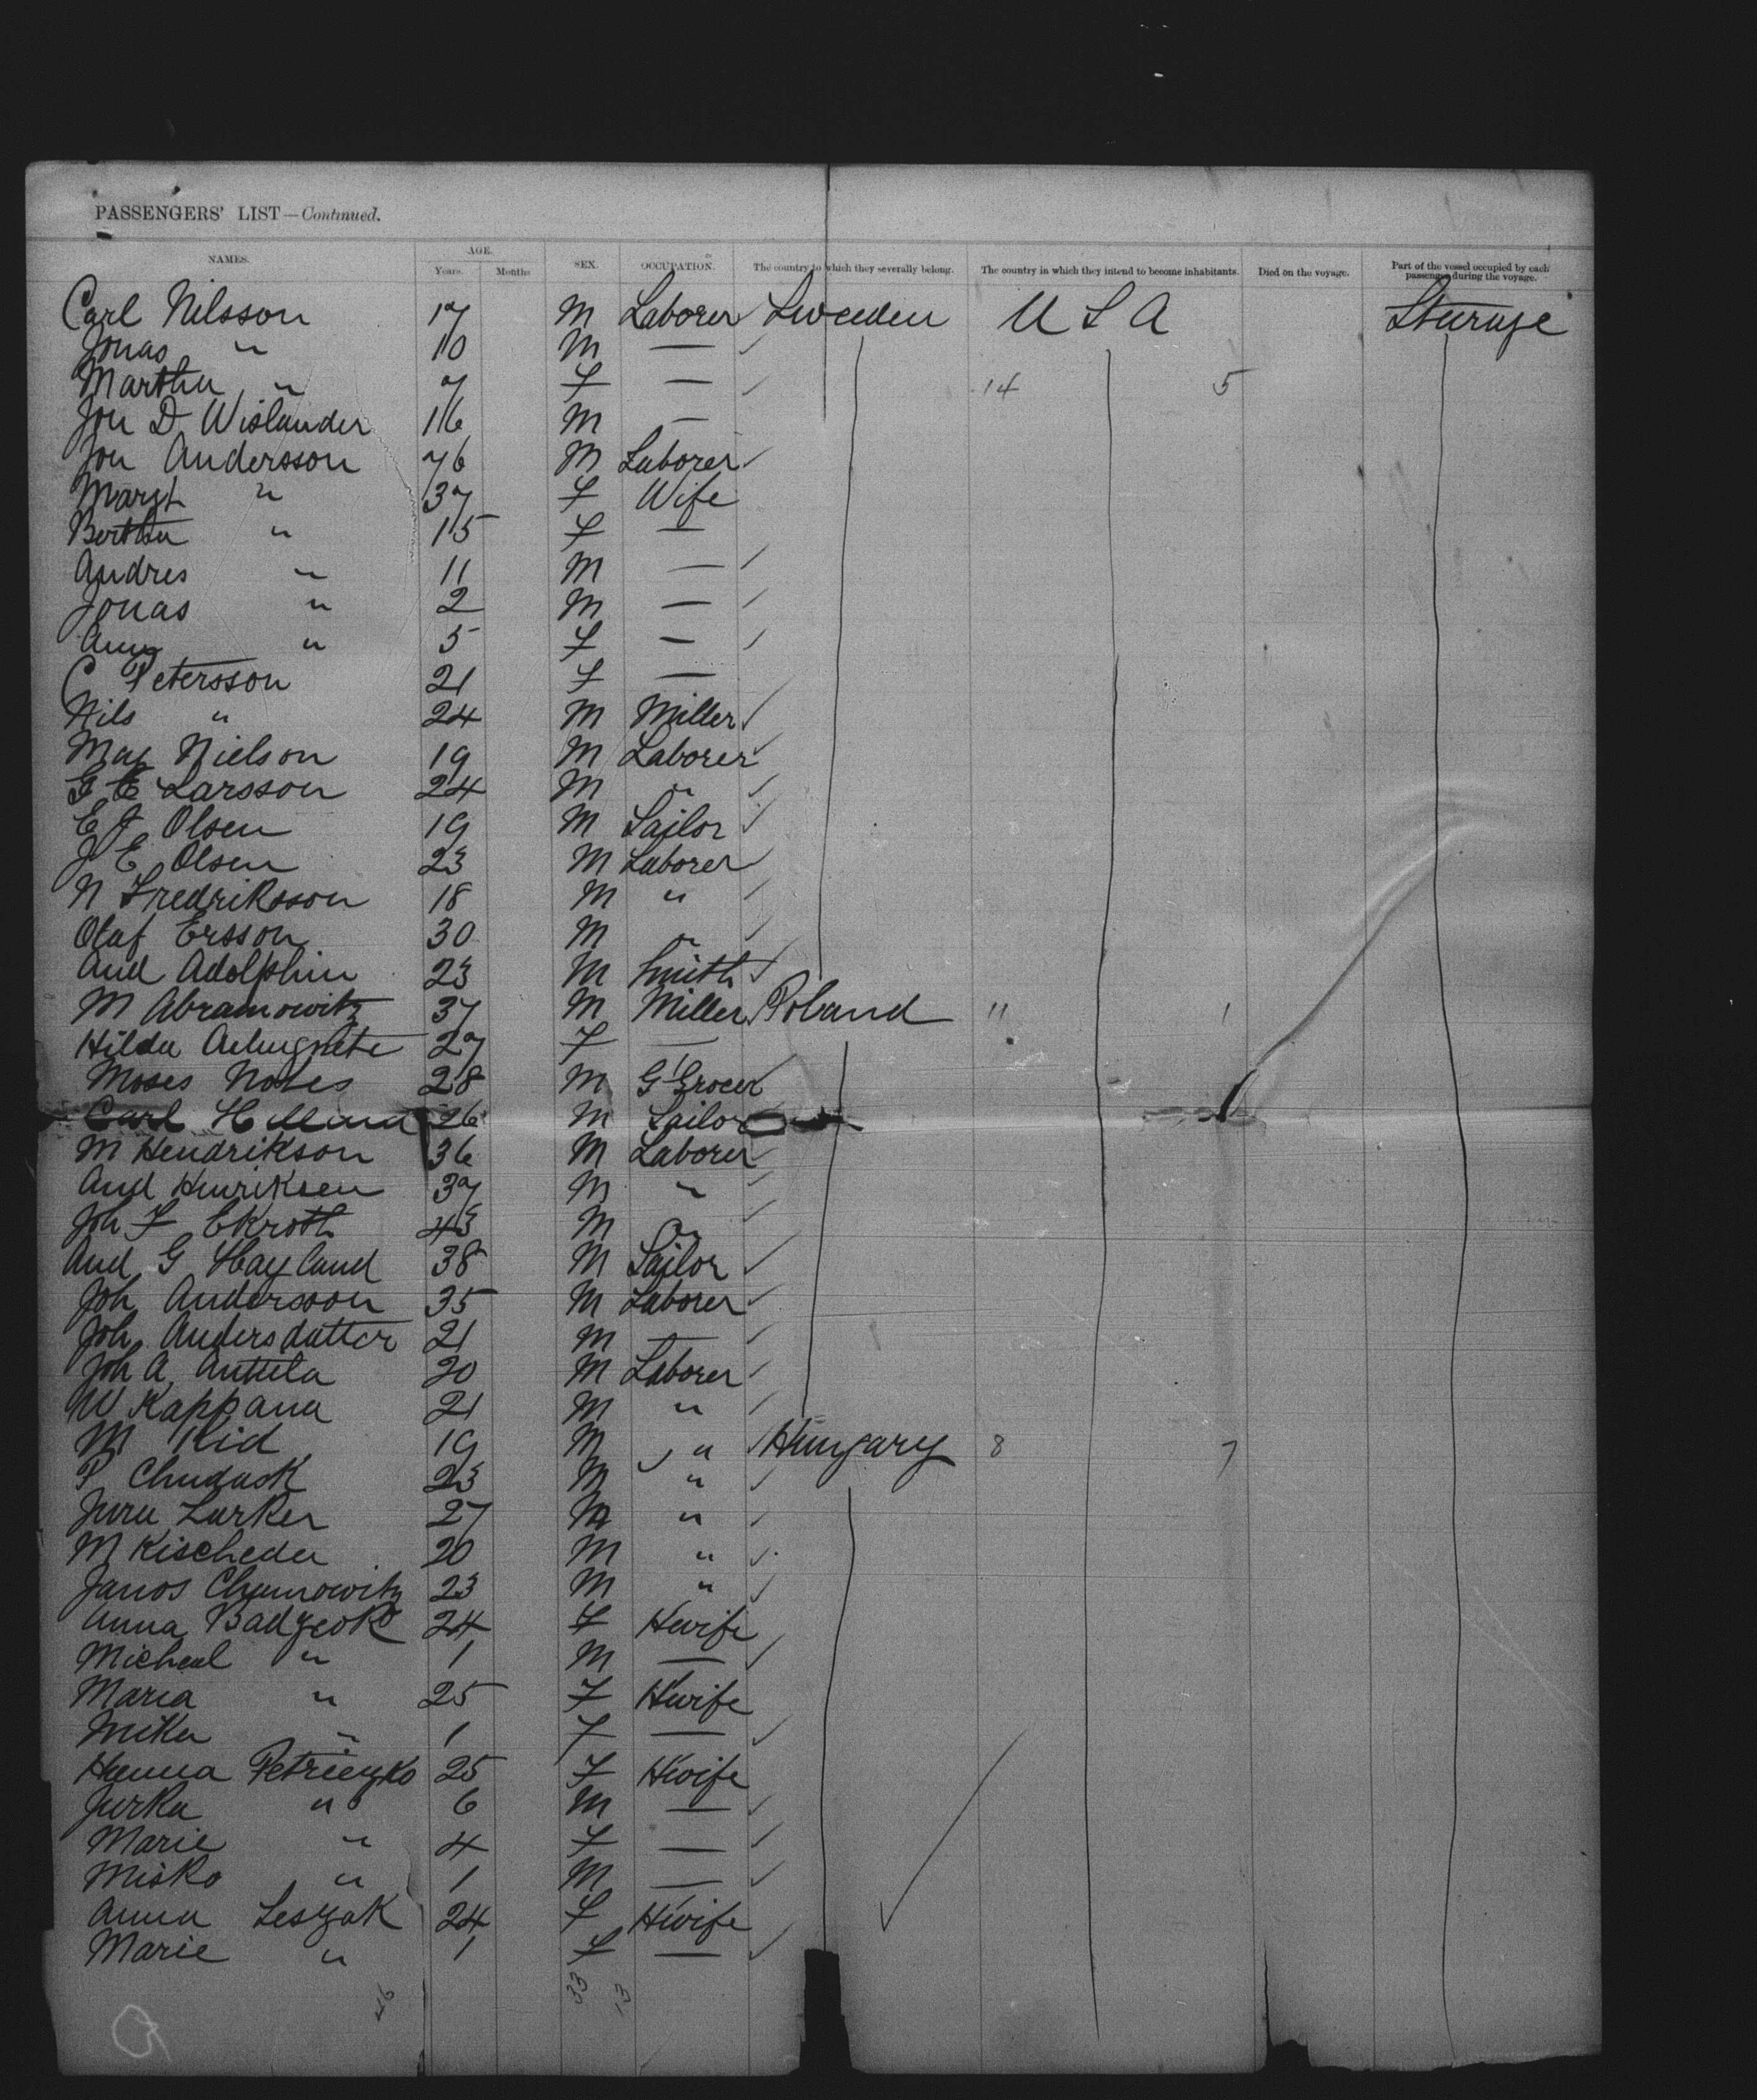 PASSENGERS' LIST—Continued.
NAMES. AGE. Years. Months SEX. OCCUPATION. The country to which they severally belong. The country in which they intend to become inhabitants. Died on the voyage. Part of the vessel occupied by each passenger during the voyage.
Carl Nilsson 17 M Laborer Sweeden U S A Sturage
Jonas " 10 M —
Martha " 7 F — 14 5
Jon D Wislander 16 M —
Jon Andersson 76 M Laborer
Margt " 37 F Wife
Bertha " 15 F —
Andres " 11 M —
Jonas " 2 M —
" 5 F —
C Petersson 21 F —
Nils " 24 M Miller
Max Nielson 19 M Laborer
Larsson 24 M "
E J Olsen 19 M Sailor
J E Olsen 23 M Laborer
N Fredriksson 18 M "
Olaf Ersson 30 M "
And Adolphin 23 M Smith
M Abramowitz 37 M Miller Poland 11 1
Hilda 27 F —
Moses 28 M G Grocer
Carl 26 M Sailor
M Hendrikson 36 M Laborer
And Hinriksen 37 M "
Joh F Ekroth 43 M "
And G Hayland 38 M Sailor
Joh Andersson 35 M Laborer
Joh Andersdatter 21 M —
Joh A Antula 20 M Laborer
W Kappana 21 M "
M 19 M " Hungary 8 7
P Chudask 23 M "
Juru Zurker 27 M "
M Kischeda 20 M "
Janos 23 M "
Anna Badzcok 24 F Hwife
Micheal " 1 M —
Maria " 25 F Hwife
Mika " 1 F —
Hanna 25 F Hwife
Jurka " 6 M —
Marie " 4 F —
Misko " 1 M —
Anna Leszak 24 F Hwife
Marie " 1 F —
46 33 13